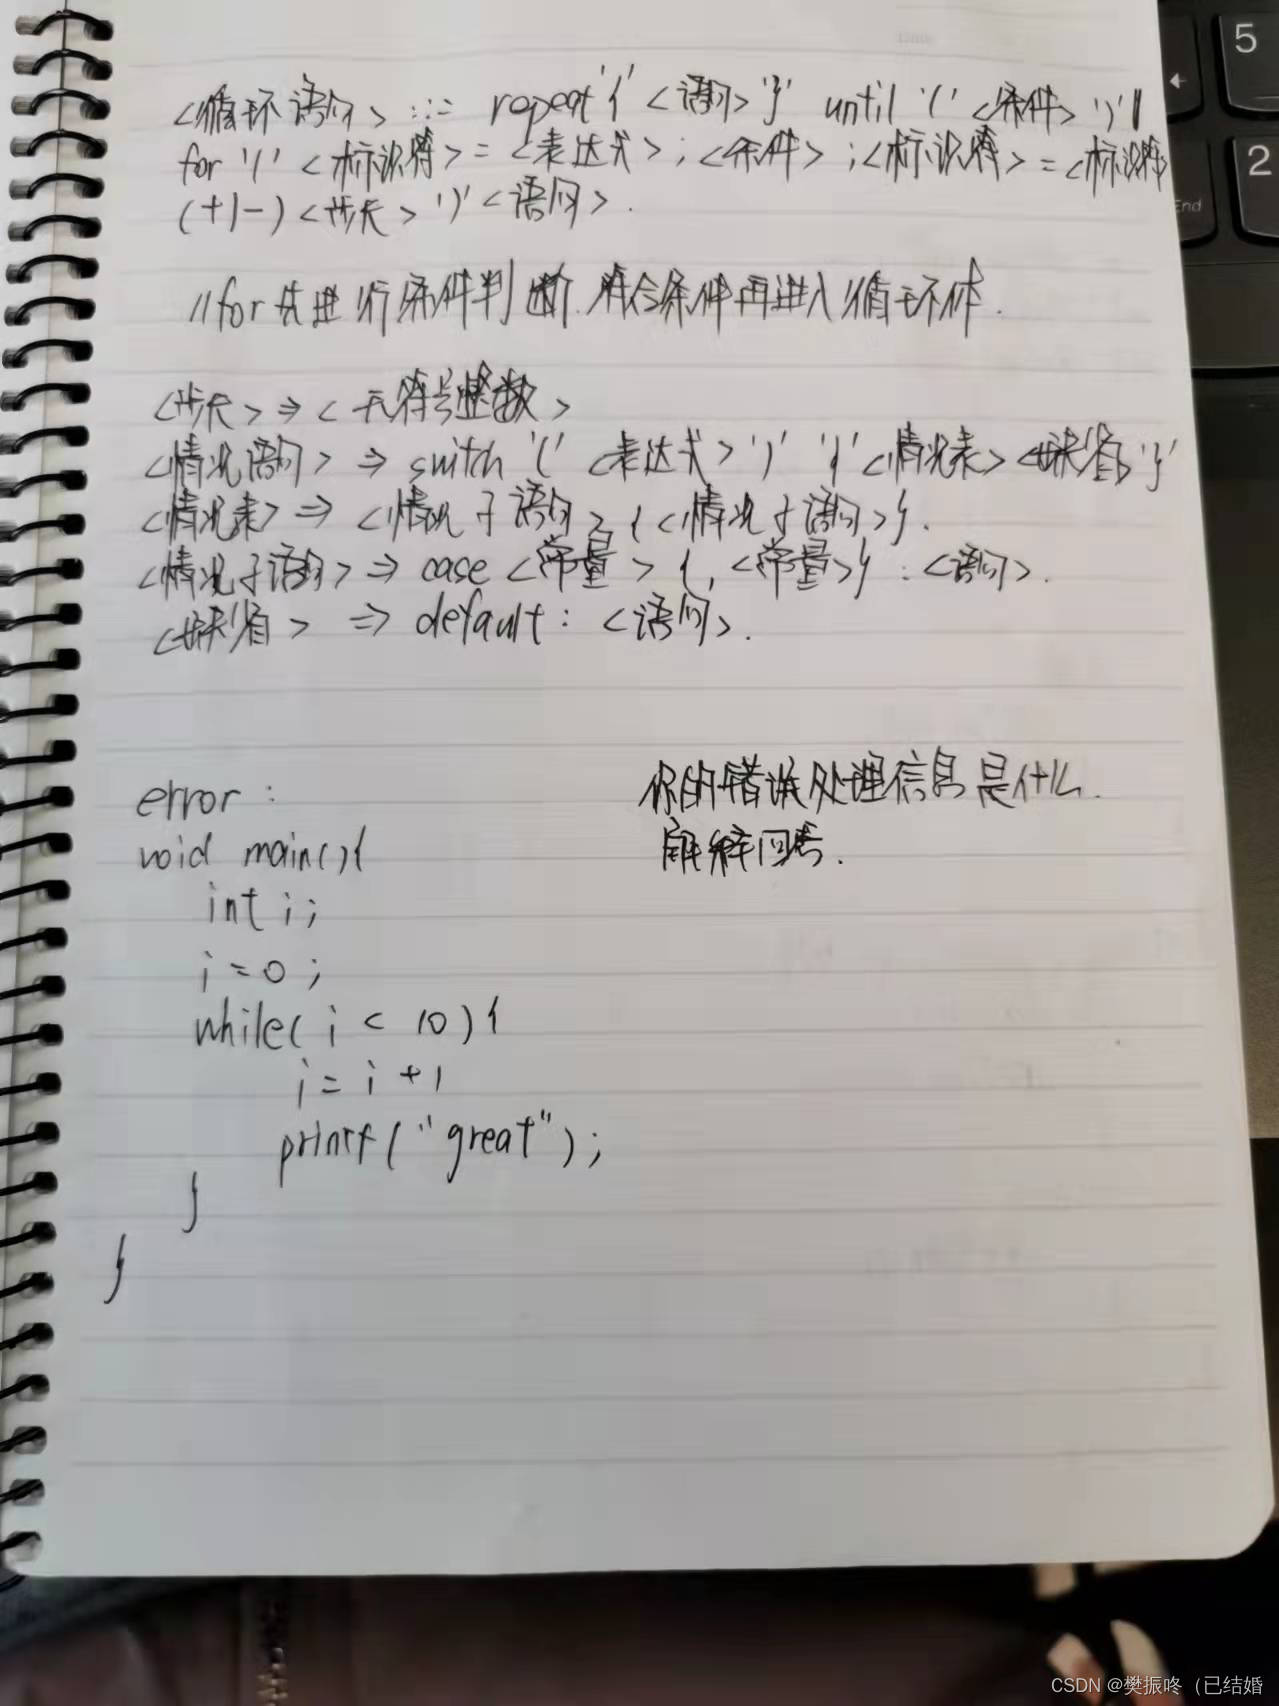 <循环语句> ::= repeat '{' <语句> '}' until '(' <条件> ')' |
for '(' <标识符> = <表达式> ; <条件> ; <标识符> = <标识符>
(+|-) <步长> ')' <语句>.
//for先进行条件判断.符合条件再进入循环体.
<步长> ⇒ <无符号整数>
<情况语句> ⇒ switch '(' <表达式> ')' '{' <情况表> <缺省> '}'
<情况表> ⇒ <情况子语句> { <情况子语句> }.
<情况子语句> ⇒ case <常量> {, <常量>} : <语句>.
<缺省> ⇒ default : <语句>.
error :
你的错误处理信息是什么.
void main(){
int i;
i = 0 ;
while( i < 10 ){
i = i + 1
printf("great");
}
}
5
2
End
CSDN @樊振咚（已结婚